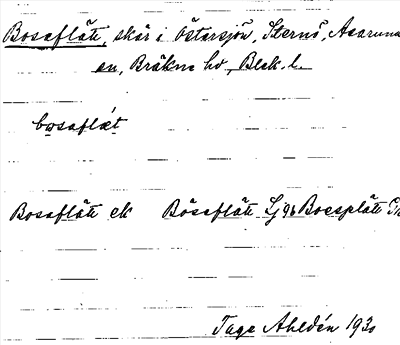 Bosaflätt, skär i Östersjön, Sternö, Asarums
sn, Bräkne hd, Blek. l.
bosaflæt
Bosaflätt ek Bösaflätt Sjgb Boesplätt
Tage Ahldén 1930